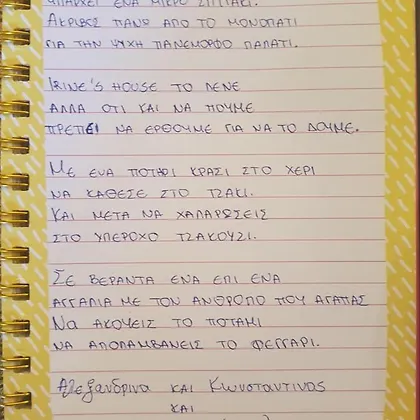 ΥΠΑΡΧΕΙ ΕΝΑ ΜΙΚΡΟ ΣΠΙΤΑΚΙ.
ΑΚΡΙΒΩΣ ΠΑΝΩ ΑΠΟ ΤΟ ΜΟΝΟΠΑΤΙ
ΓΙΑ ΤΗΝ ΨΥΧΗ ΠΑΝΕΜΟΡΦΟ ΠΑΛΑΤΙ.
IRINE'S HOUSE ΤΟ ΛΕΝΕ
ΑΛΛΑ ΟΤΙ ΚΑΙ ΝΑ ΠΟΥΜΕ
ΠΡΕΠΕΙ ΝΑ ΕΡΘΟΥΜΕ ΓΙΑ ΝΑ ΤΟ ΔΟΥΜΕ.
ΜΕ ΕΝΑ ΠΟΤΗΡΙ ΚΡΑΣΙ ΣΤΟ ΧΕΡΙ
ΝΑ ΚΑΘΕΣΕ ΣΤΟ ΤΖΑΚΙ.
ΚΑΙ ΜΕΤΑ ΝΑ ΧΑΛΑΡΩΣΕΙΣ
ΣΤΟ ΥΠΕΡΟΧΟ ΤΖΑΚΟΥΖΙ.
ΣΕ ΒΕΡΑΝΤΑ ΕΝΑ ΕΠΙ ΕΝΑ
ΑΓΓΑΛΙΑ ΜΕ ΤΟΝ ΑΝΘΡΟΠΟ ΠΟΥ ΑΓΑΠΑΣ
Να ΑΚΟΥΕΙΣ ΤΟ ΠΟΤΑΜΙ
ΝΑ ΑΠΟΛΑΜΒΑΝΕΙΣ ΤΟ ΦΕΓΓΑΡΙ.
Αλεξανδρινα ΚΑΙ Κωνσταντινος
ΚΑΙ